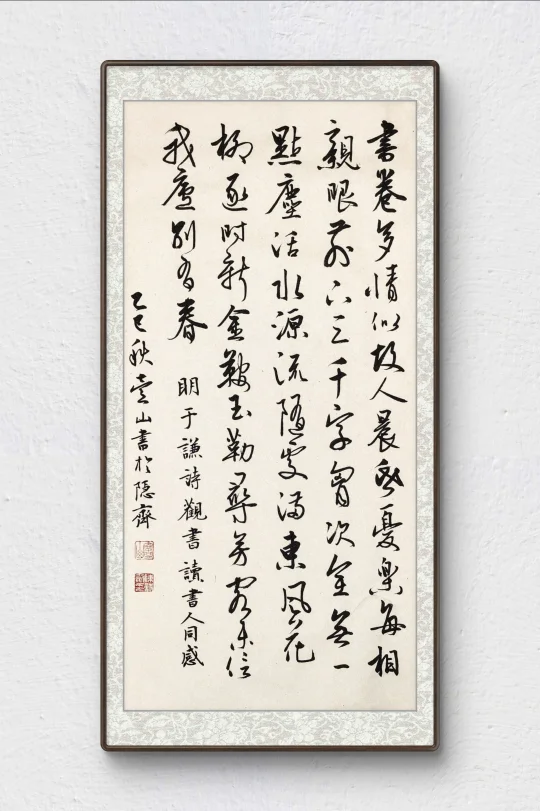 書卷多情似故人晨昏憂樂每相
親眼前下三千字胷次全無一
點塵活水源流隨處滿東風花
柳逐時新金鞍玉勒尋芳客未信
我廬別有春 明于謙詩觀書讀書人同感
乙巳秋山書於隱齊